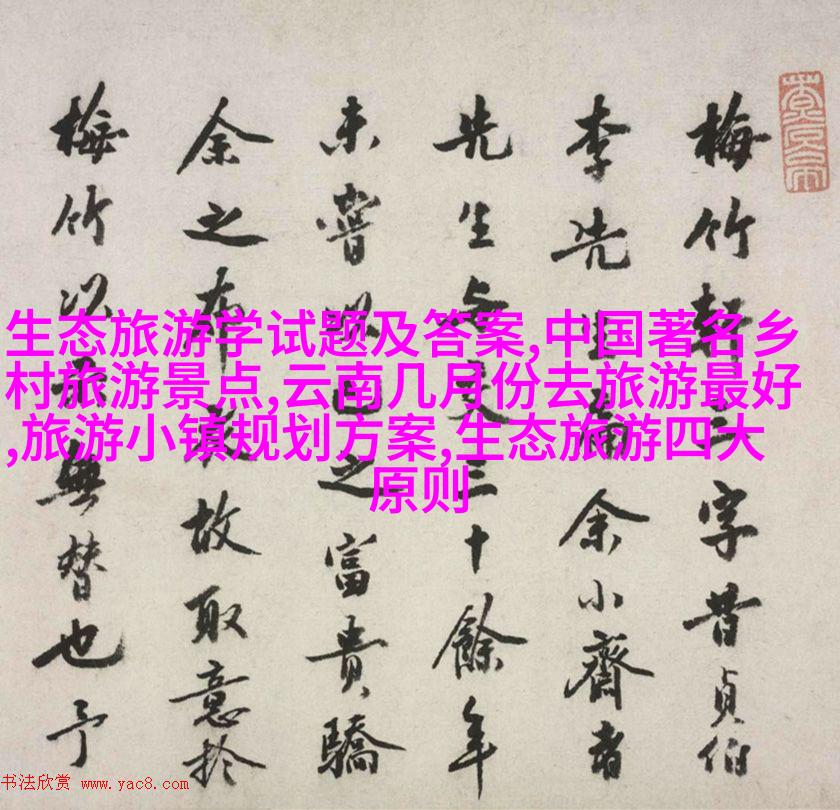 生态旅游学试题及答案,中国著名乡
村旅游景点,云南几月份去旅游最好
,旅游小镇规划方案,生态旅游四大
原则
梅竹軒三字昔貞伯
李先生為余小齋書
先生與交三十餘年
未嘗以目之富貴驕
余之布故取意於
梅竹以示無替也予
书法欣赏 www.yac8.com